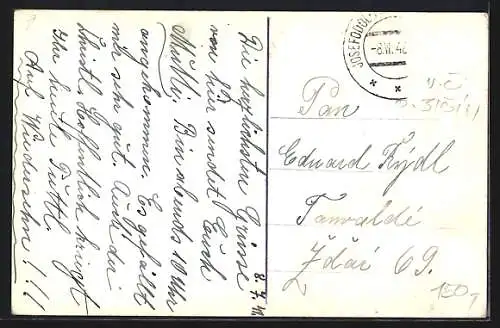 Die herzlichsten Grüsse
von hier sendet Euch
Mutti. Bin abends 10 Uhr
angekommen. Es gefällt
mir sehr gut. Auch der
Christl. Hoffentlich kriegt
Ihr heute
Auf Wiedersehn!!!
8.7.
JOSEFODOL
Pan
Eduard Rýdl
Ždár 69.
150